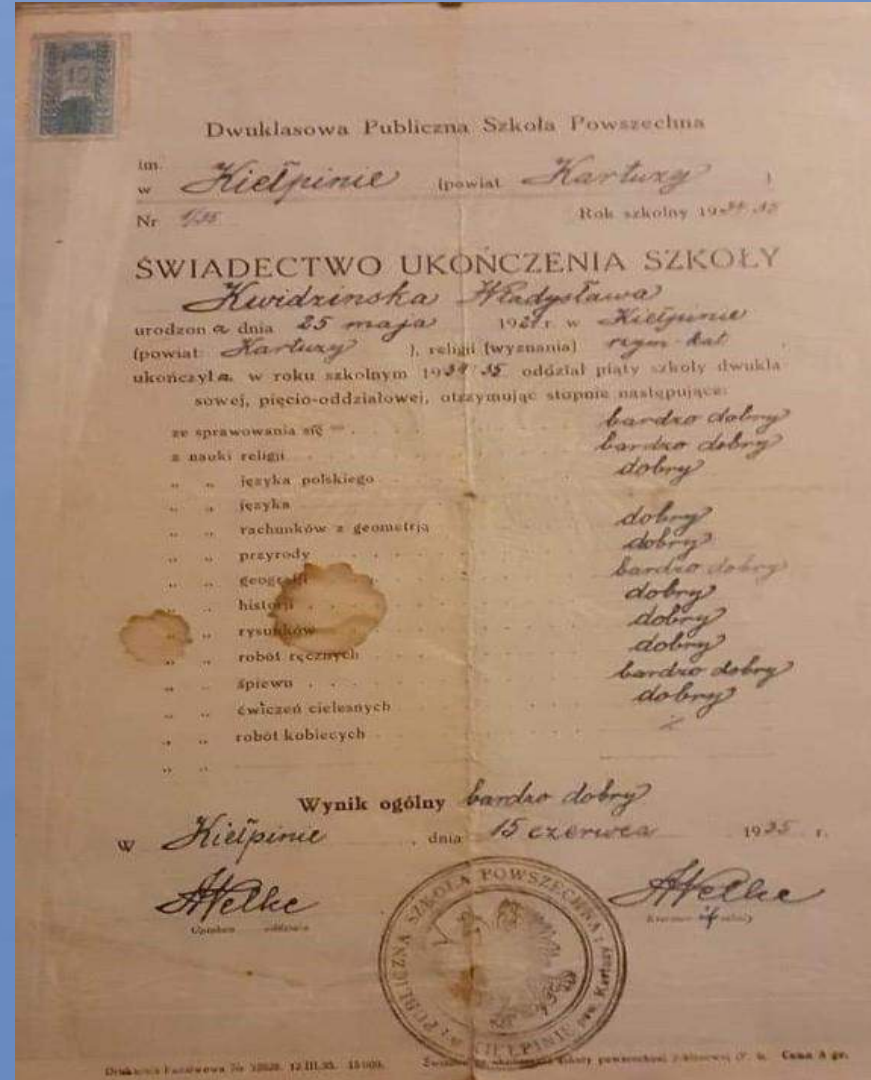 10
Dwuklasowa Publiczna Szkoła Powszechna
im.
w Kiełpinie (powiat Kartuzy )
Nr 1/35 Rok szkolny 1934/35
ŚWIADECTWO UKOŃCZENIA SZKOŁY
Kwidzinska Władysława
urodzon a dnia 25 maja 1921 r. w Kiełpinie
(powiat Kartuzy ), religii (wyznania) rzym-kat ,
ukończyła w roku szkolnym 1934/35 oddział piąty szkoły dwukla-
sowej, pięcio-oddziałowej, otrzymując stopnie następujące:
ze sprawowania się bardzo dobry
z nauki religii bardzo dobry
" " języka polskiego dobry
" " języka
" " rachunków z geometrją dobry
" " przyrody dobry
" " geografji bardzo dobry
" " historji dobry
" " rysunków dobry
" " robót ręcznych dobry
" " śpiewu bardzo dobry
" " ćwiczeń cielesnych dobry
" " robót kobiecych
" "
Wynik ogólny bardzo dobry
W Kiełpinie , dnia 15 czerwca 1935 r.
AWelke AWelke
Opiekun oddziału Kierownik szkoły
PUBLICZNA SZKOŁA POWSZECHNA
w KIEŁPINIE pow. Kartuzy
Drukarnia Państwowa Nr 12.III.35. 15000. szkoły powszechnej Cena 5 gr.